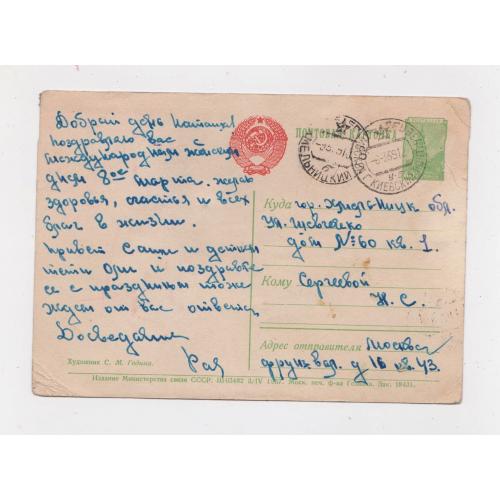 Добрый день Наташа!
Поздравляю вас
международным женским
днём 8ое марта. желаю
здоровья, счастья и всех
благ в жизни.
Привет Саши и деткам
тети Оли и поздравьте
ее с праздником тоже
ждем от вас ответа,
Досведания
Рая
Художник С. М. Година.
ПОЧТОВАЯ КАРТОЧКА
Куда гор. Хмельницк обл.
ул. Шевченко
дом № 60 кв. 1.
Кому Сергеевой
Н. С.
Адрес отправителя Москва
фрунз вал. д 16 кв. 43.
Издание Министерства связи СССР.